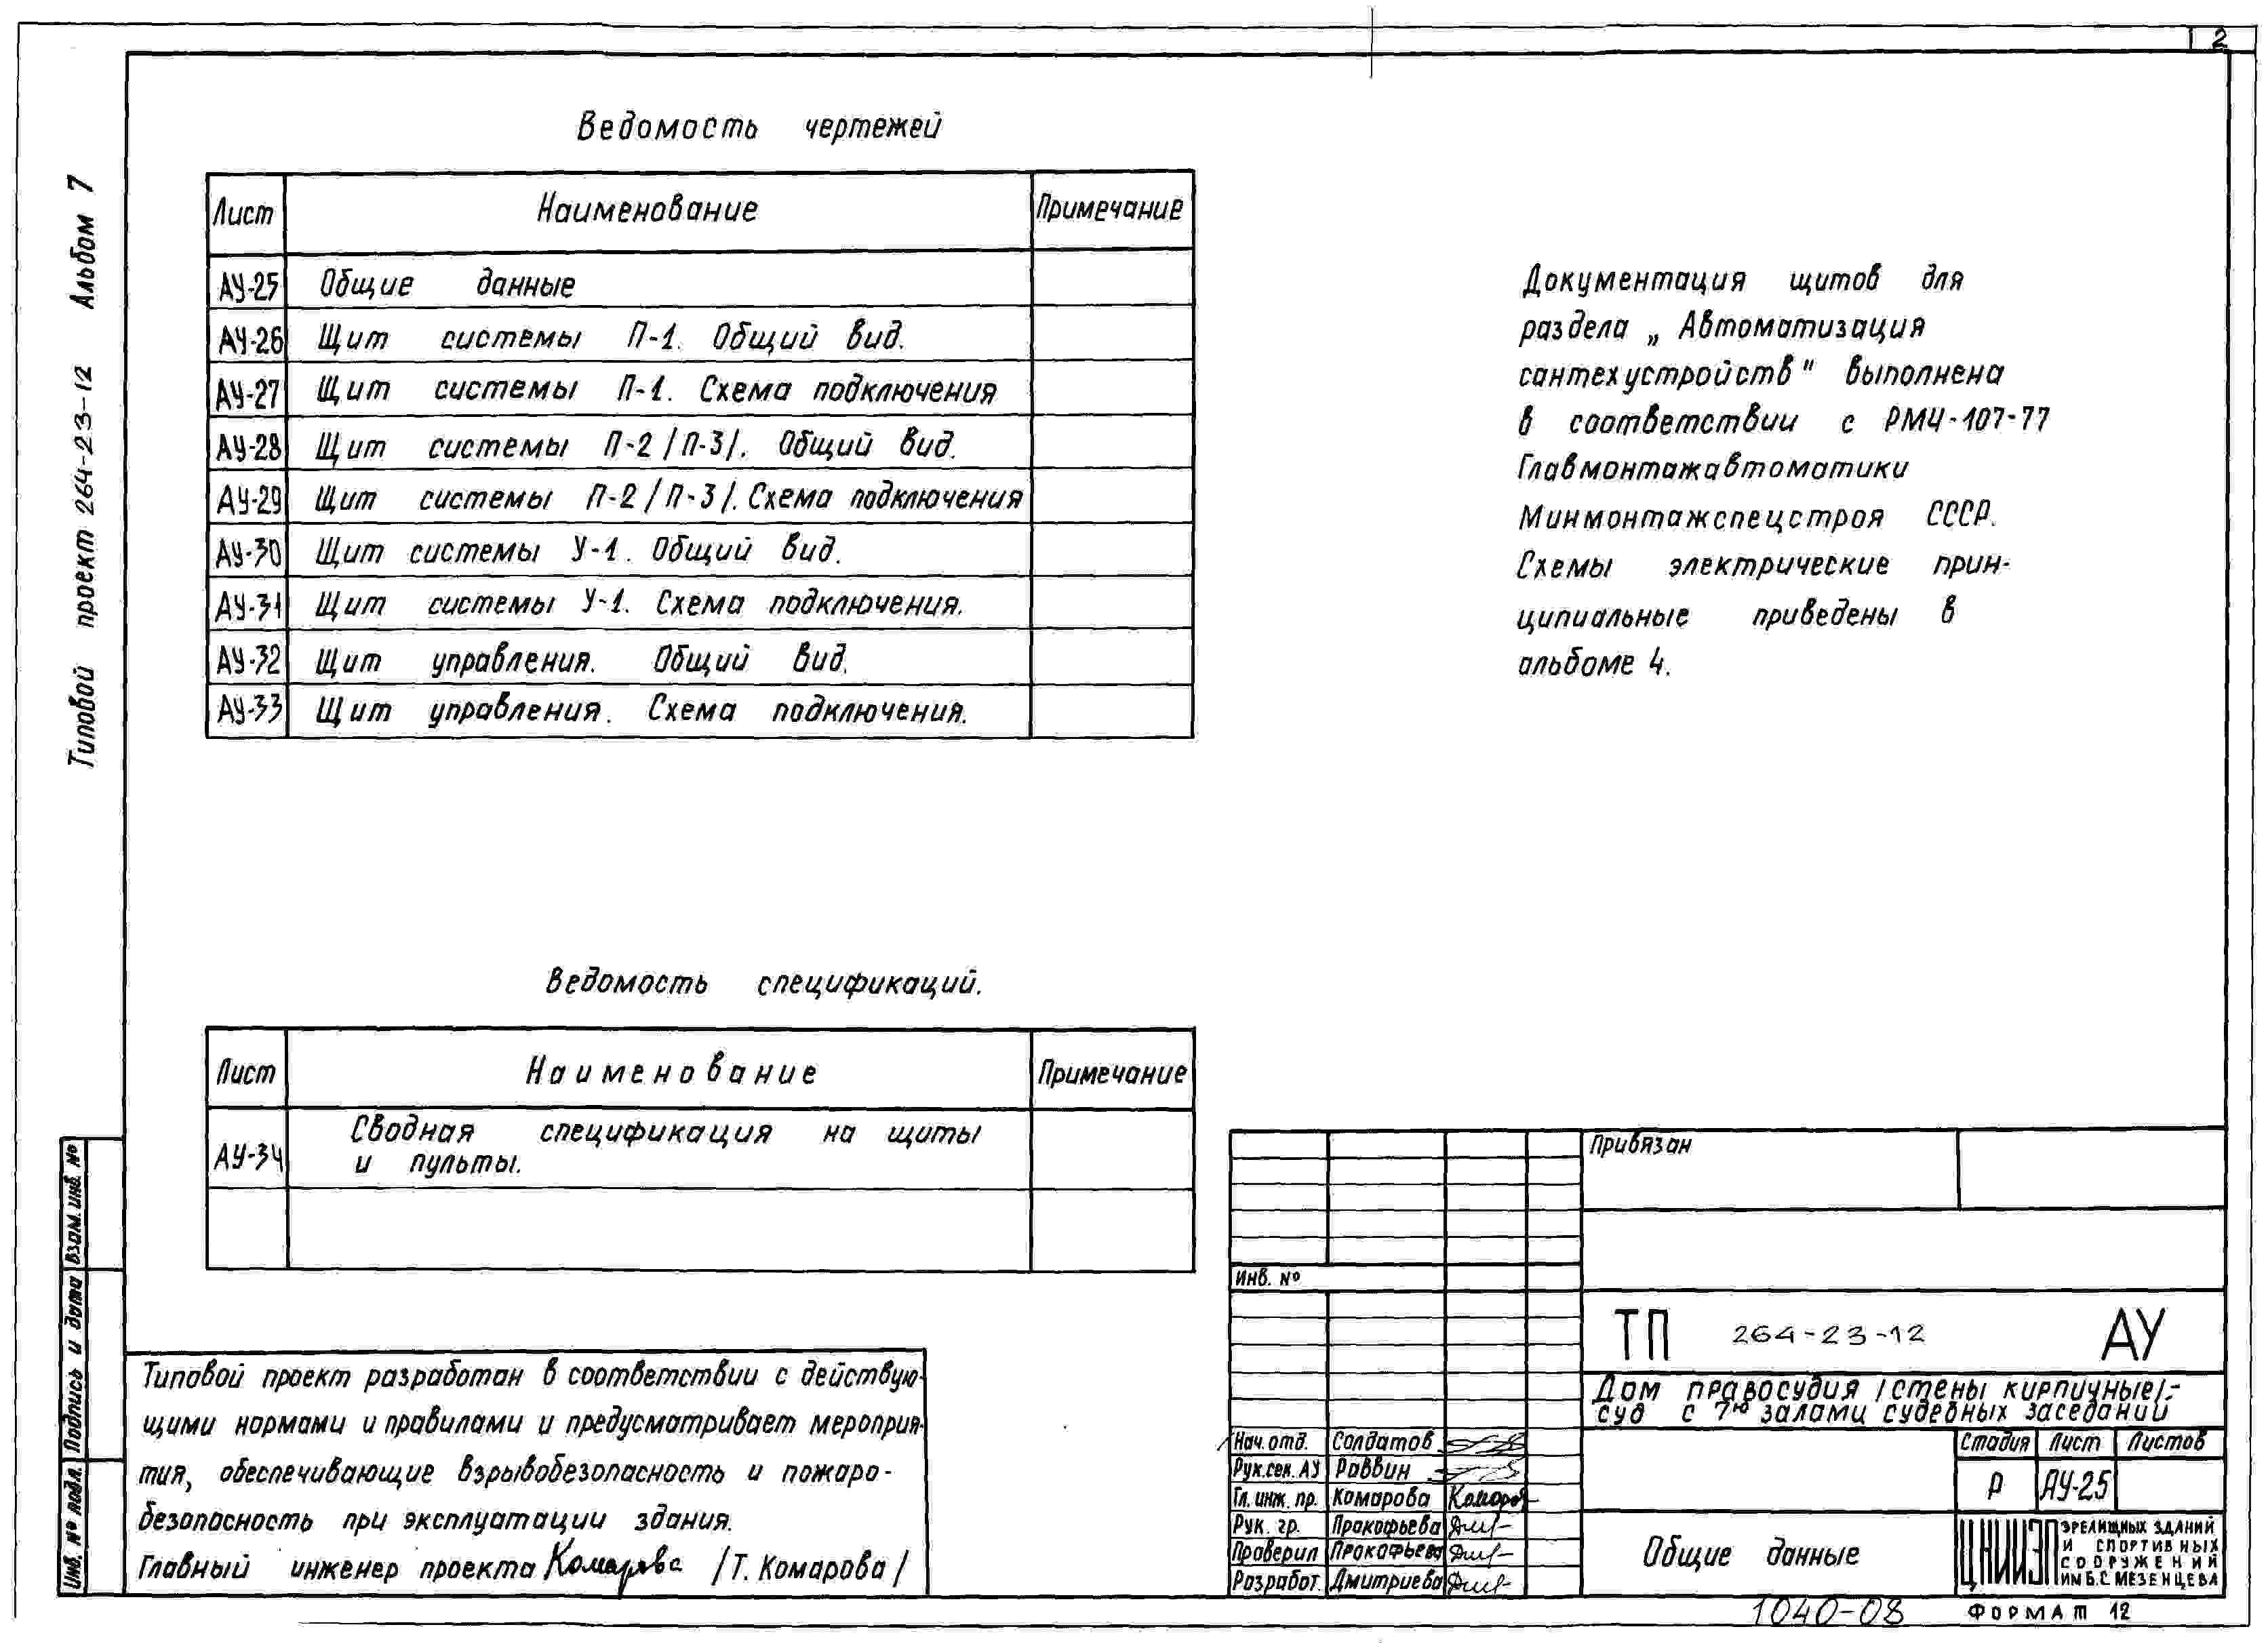 2
Типовой проект 264-23-12 Альбом 7
Ведомость чертежей
Лист Наименование Примечание
АУ-25 Общие данные
АУ-26 Щит системы П-1. Общий вид.
АУ-27 Щит системы П-1. Схема подключения
АУ-28 Щит системы П-2 /П-3/. Общий вид.
АУ-29 Щит системы П-2 /П-3/. Схема подключения
АУ-30 Щит системы У-1. Общий вид.
АУ-31 Щит системы У-1. Схема подключения.
АУ-32 Щит управления. Общий вид.
АУ-33 Щит управления. Схема подключения.
Документация щитов для
раздела „Автоматизация
сантехустройств" выполнена
в соответствии с РМ4-107-77
Главмонтажавтоматики
Минмонтажспецстроя СССР.
Схемы электрические прин-
ципиальные приведены в
альбоме 4.
Ведомость спецификаций.
Лист Наименование Примечание
АУ-34 Сводная спецификация на щиты
и пульты.
Типовой проект разработан в соответствии с действую-
щими нормами и правилами и предусматривает мероприя-
тия, обеспечивающие взрывобезопасность и пожаро-
безопасность при эксплуатации здания.
Главный инженер проекта Комарова /Т. Комарова/
Инв. № подл. Подпись и дата Взам. инв. №
Привязан
Инв. №
ТП 264-23-12 АУ
Дом правосудия /стены кирпичные/.-
суд с 7ю залами судебных заседаний
Нач. отд. Солдатов
Рук. сек. АУ Раввин
Гл. инж. пр. Комарова Комаров
Рук. гр. Прокофьева
Проверил Прокофьева
Разработ. Дмитриева
Стадия Лист Листов
Р АУ-25
Общие данные
ЦНИИЭП ЗРЕЛИЩНЫХ ЗДАНИЙ
И СПОРТИВНЫХ
СООРУЖЕНИЙ
ИМ Б.С. МЕЗЕНЦЕВА
1040-08 ФОРМАТ 12